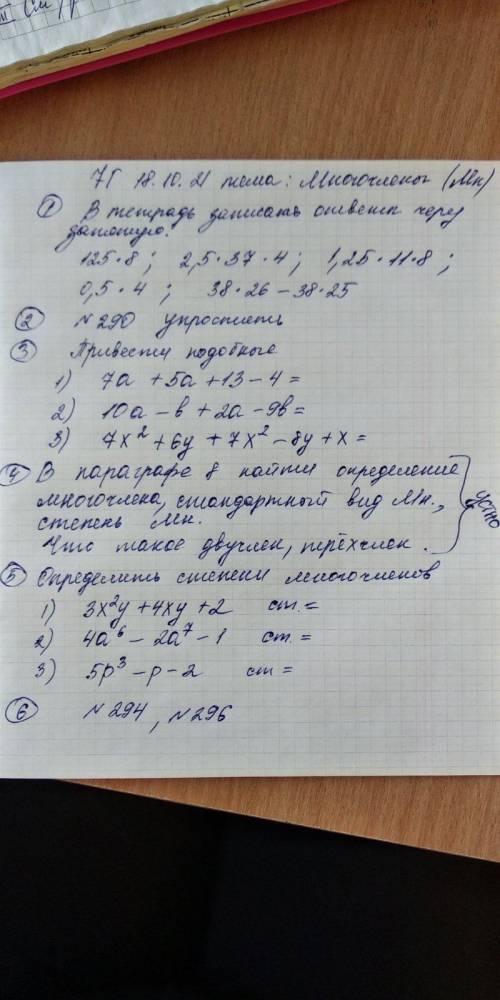 7Г 18.10.21 тема: Многочлены (Мн)
① В тетрадь записать ответы через
запятую.
125·8 ; 2,5·37·4 ; 1,25·11·8 ;
0,5·4 ; 38·26 – 38·25
② №290 упростить
③ Привести подобные
1) 7a + 5a + 13 – 4 =
2) 10a – в + 2a – 9в =
3) 7x² + 6y + 7x² – 8y + x =
④ В параграфе 8 найти определение
многочлена, стандартный вид Мн.,
степень Мн.
Что такое двучлен, трёхчлен.
устно
⑤ Определить степени многочленов
1) 3x²y + 4xy + 2 ст. =
2) 4a⁶ – 2a⁷ – 1 ст. =
3) 5p³ – p – 2 ст =
⑥ №294, №296